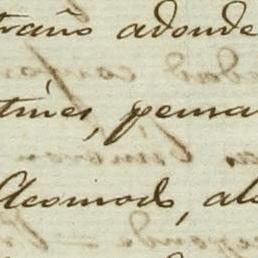 traño adonde
tines, pensa
Acomodo, alo